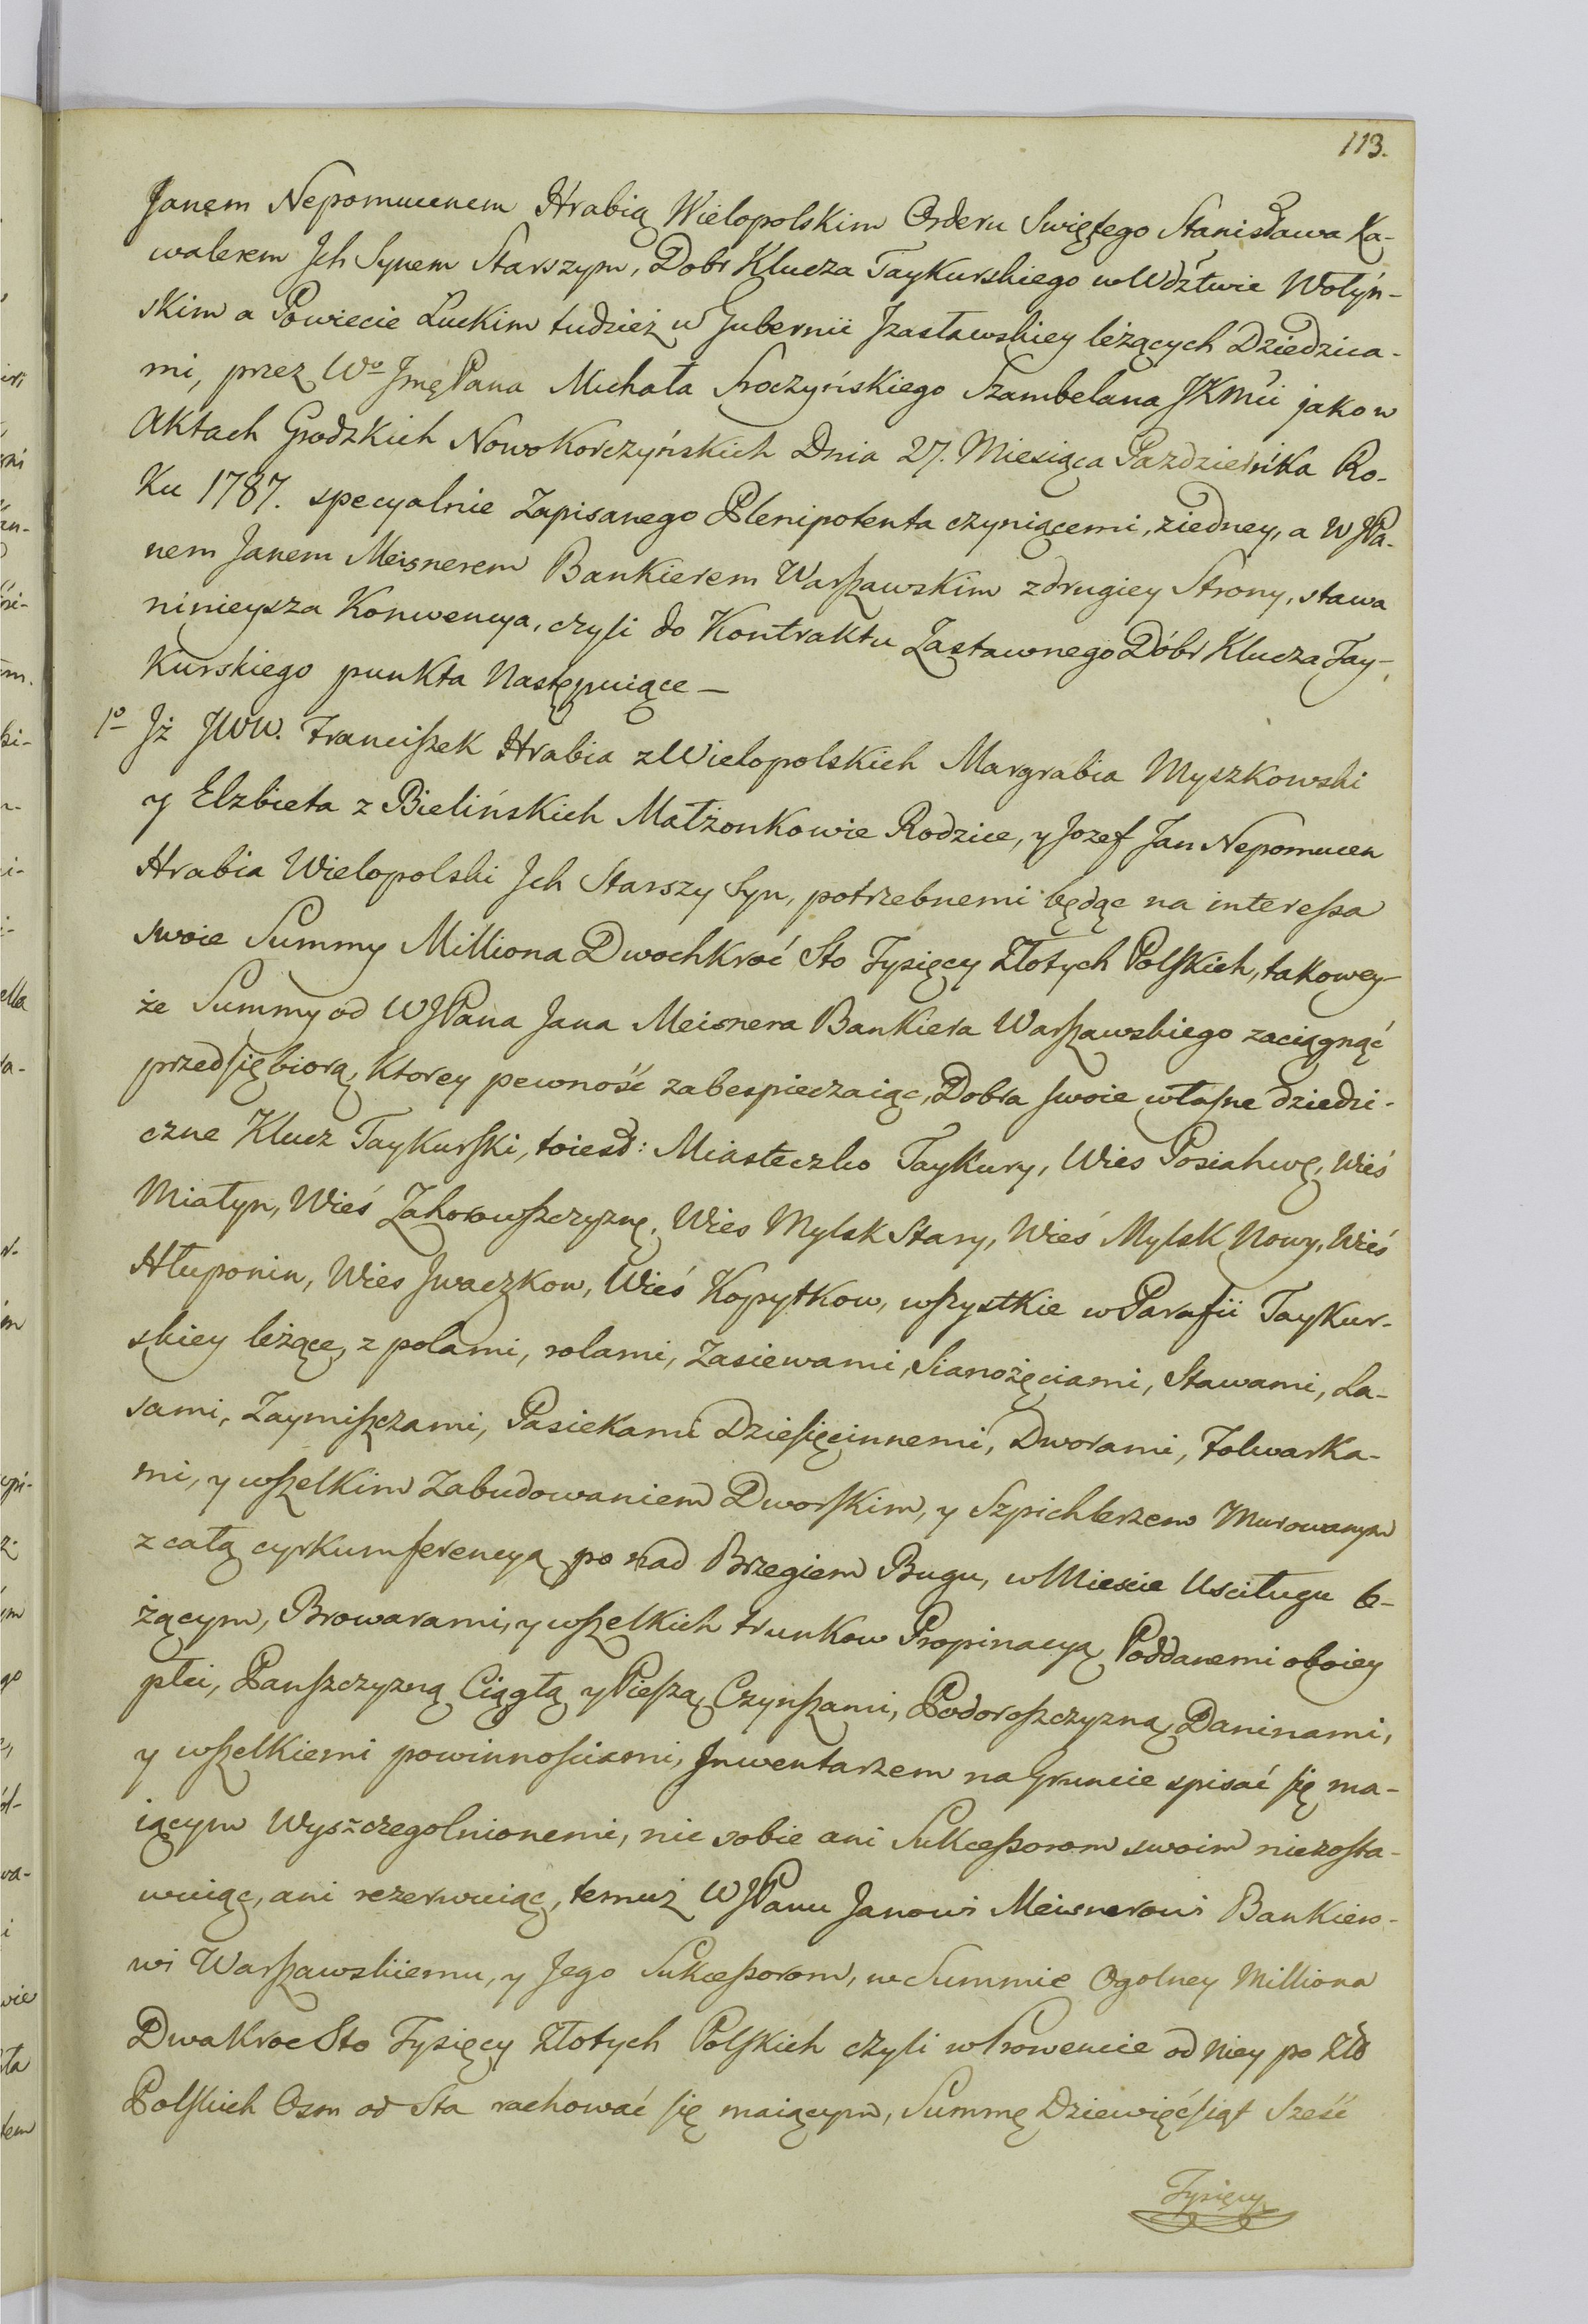 113.
Janem Nepomucenem Hrabią Wielopolskim Orderu Swiętego Stanisława Ka-
walerem Jch Synem Starszym, Dobr Klucza Taykurskiego w Wdztwie Wołyń-
skim a Powiecie Łuckim tudzież w Gubernii Jzasławskiey leżących Dziedzica-
mi, przez Wo JmęPana Michała Sroczyńskiego Szambelana JKMci jako w
Aktach Grodzkich Nowokorczyńskich Dnia 27. Miesiąca Pazdziernika Ro-
ku 1787. specyalnie Zapisanego Plenipotenta czyniącemi, ziedney, a WJPa-
nem Janem Meisnerem Bankierem Warszawskim z drugiey Strony, stawa
ninieysza Konwencya, czyli do Kontraktu Zastawnego Dóbr Klucza Tay-
kurskiego punkta Następuiące —
1o Jż JWW. Franciszek Hrabia z Wielopolskich Margrabia Myszkowski
y Elzbieta z Bielińskich Małżonkowie Rodzice, y Jozef Jan Nepomucen
Hrabia Wielopolski Jch Starszy Syn, potrzebnemi będąc na interessa
swoie Summy Milliona Dwochkroć Sto Tysięcy Złotych Polskich, takowey-
że Summy od WJPana Jana Meisnera Bankiera Warszawskiego zaciągnąć
przedsiębiorą, Ktorey pewność zabespieczaiąc, Dobra swoie własne dziedzi-
czne Klucz Taykurski, toiest: Miasteczko Taykury, Wies Posiahwę, Wieś
Miatyn, Wieś Zahorowszczyznę, Wies Mylsk Stary, Wieś Mylsk Nowy, Wieś
Hłuponin, Wies Jwaczkow, Wieś Kopytkow, wszystkie w Parafii Taykur-
skiey leżące, z polami, rolami, Zasiewami, Sianożęciami, Stawami, La-
sami, Zaymiszczami, Pasiekami Dziesięcinnemi, Dworami, Folwarka-
mi, y wszelkim Zabudowaniem Dworskim, y Szpichlerzem Murowanym
z całą cyrkumferencyą po nad Brzegiem Bugu, w Miescie Uscilugu le-
żącym, Browarami, y wszelkich trunkow Propinacyą, Poddanemi oboiey
płci, Panszczyzną Ciągłą y Pieszą, Czynszami, Podoroszczyzną, Daninami,
y wszelkiemi powinnościami, Jnwentarzem na Gruncie spisać się ma-
iącym Wyszczegolnionemi, nic sobie ani Sukcessorom swoim niezosta-
wuiąc, ani rezerwuiąc, temuż WJPanu Janowi Meisnerowi Bankiero-
wi Warszawskiemu, y Jego Sukcessorom, w Summie Ogolney Milliona
Dwakroc Sto Tysięcy Złotych Polskich czyli w Prowencie od Niey po Zło
Polskich Osm od Sta rachować się maiącym, Summę Dziewięćsiąt Sześć
Tysięcy